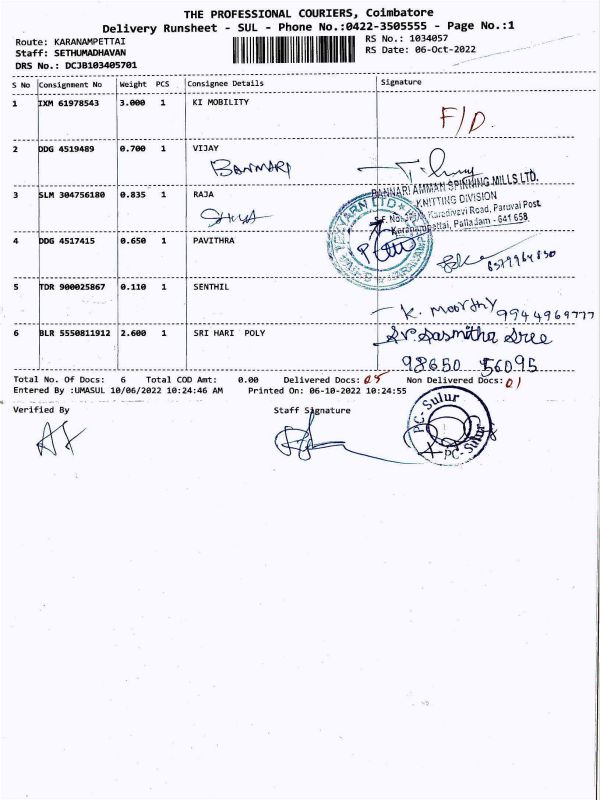 THE PROFESSIONAL COURIERS, Coimbatore
Delivery Runsheet - SUL - Phone No.:0422-3505555 - Page No.:1
Route: KARANAMPETTAI RS No.: 1034057
Staff: SETHUMADHAVAN RS Date: 06-Oct-2022
DRS No.: DCJB103405701
S No Consignment No Weight PCS Consignee Details Signature
1 IXM 61978543 3.000 1 KI MOBILITY
F/D.
2 DDG 4519489 0.700 1 VIJAY
BANNARI
BANNARI AMMAN SPINNING MILLS LTD.
3 SLM 304756180 0.835 1 RAJA
KNITTING DIVISION
Karadivavi Road, Paruvai Post
Karanampettai, Palladam - 641 658
4 DDG 4517415 0.650 1 PAVITHRA
5 TDR 900025867 0.110 1 SENTHIL
K. moorthy 9944969777
6 BLR 5550811912 2.600 1 SRI HARI POLY
Sasmitha Sree
98650 56095
Total No. Of Docs: 6 Total COD Amt: 0.00 Delivered Docs: 05 Non Delivered Docs: 01
Entered By :UMASUL 10/06/2022 10:24:46 AM Printed On: 06-10-2022 10:24:55
Verified By Staff Signature
PC-Sulur
PC-Sulur